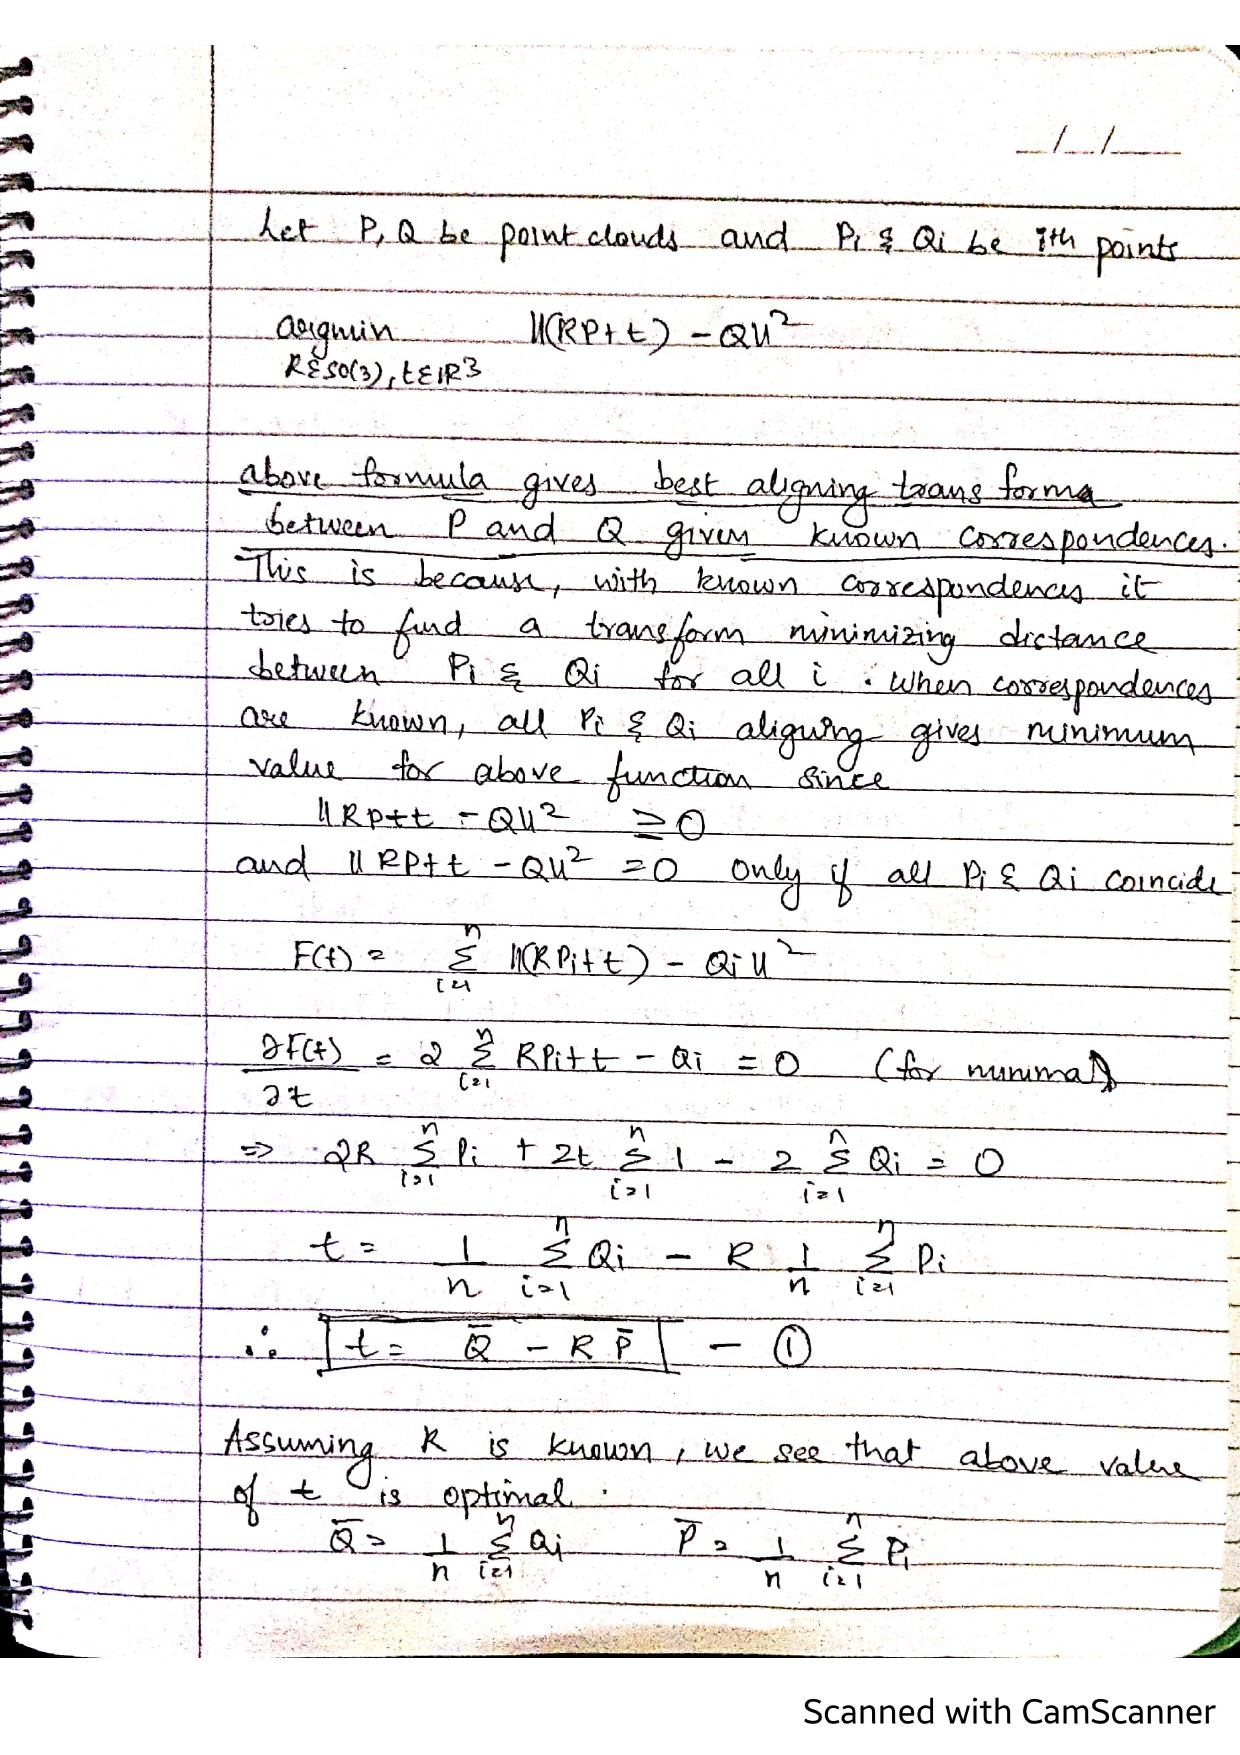 _/_/_
Let P, Q be point clouds and Pi & Qi be ith points
argmin ||(RP+t) - Q||²
R∈SO(3), t∈ℝ³
above formula gives best aligning transforma
between P and Q given known correspondences.
This is because, with known correspondences it
tries to find a transform minimizing distance
between Pi & Qi for all i. When correspondences
are known, all Pi & Qi aligning gives minimum
value for above function since
||RP+t - Q||² ≥ 0
and ||RP+t - Q||² = 0 only if all Pi & Qi coincide
F(t) = Σ_{i=1}^{n} ||(RPi+t) - Qi||²
∂F(t)/∂t = 2 Σ_{i=1}^{n} RPi+t - Qi = 0 (for minima)
⇒ 2R Σ_{i=1}^{n} Pi + 2t Σ_{i=1}^{n} 1 - 2 Σ_{i=1}^{n} Qi = 0
t = 1/n Σ_{i=1}^{n} Qi - R 1/n Σ_{i=1}^{n} Pi
∴ t = Q̄ - R P̄ - ①
Assuming R is known, we see that above value
of t is optimal.
Q̄ = 1/n Σ_{i=1}^{n} Qi P̄ = 1/n Σ_{i=1}^{n} Pi
Scanned with CamScanner